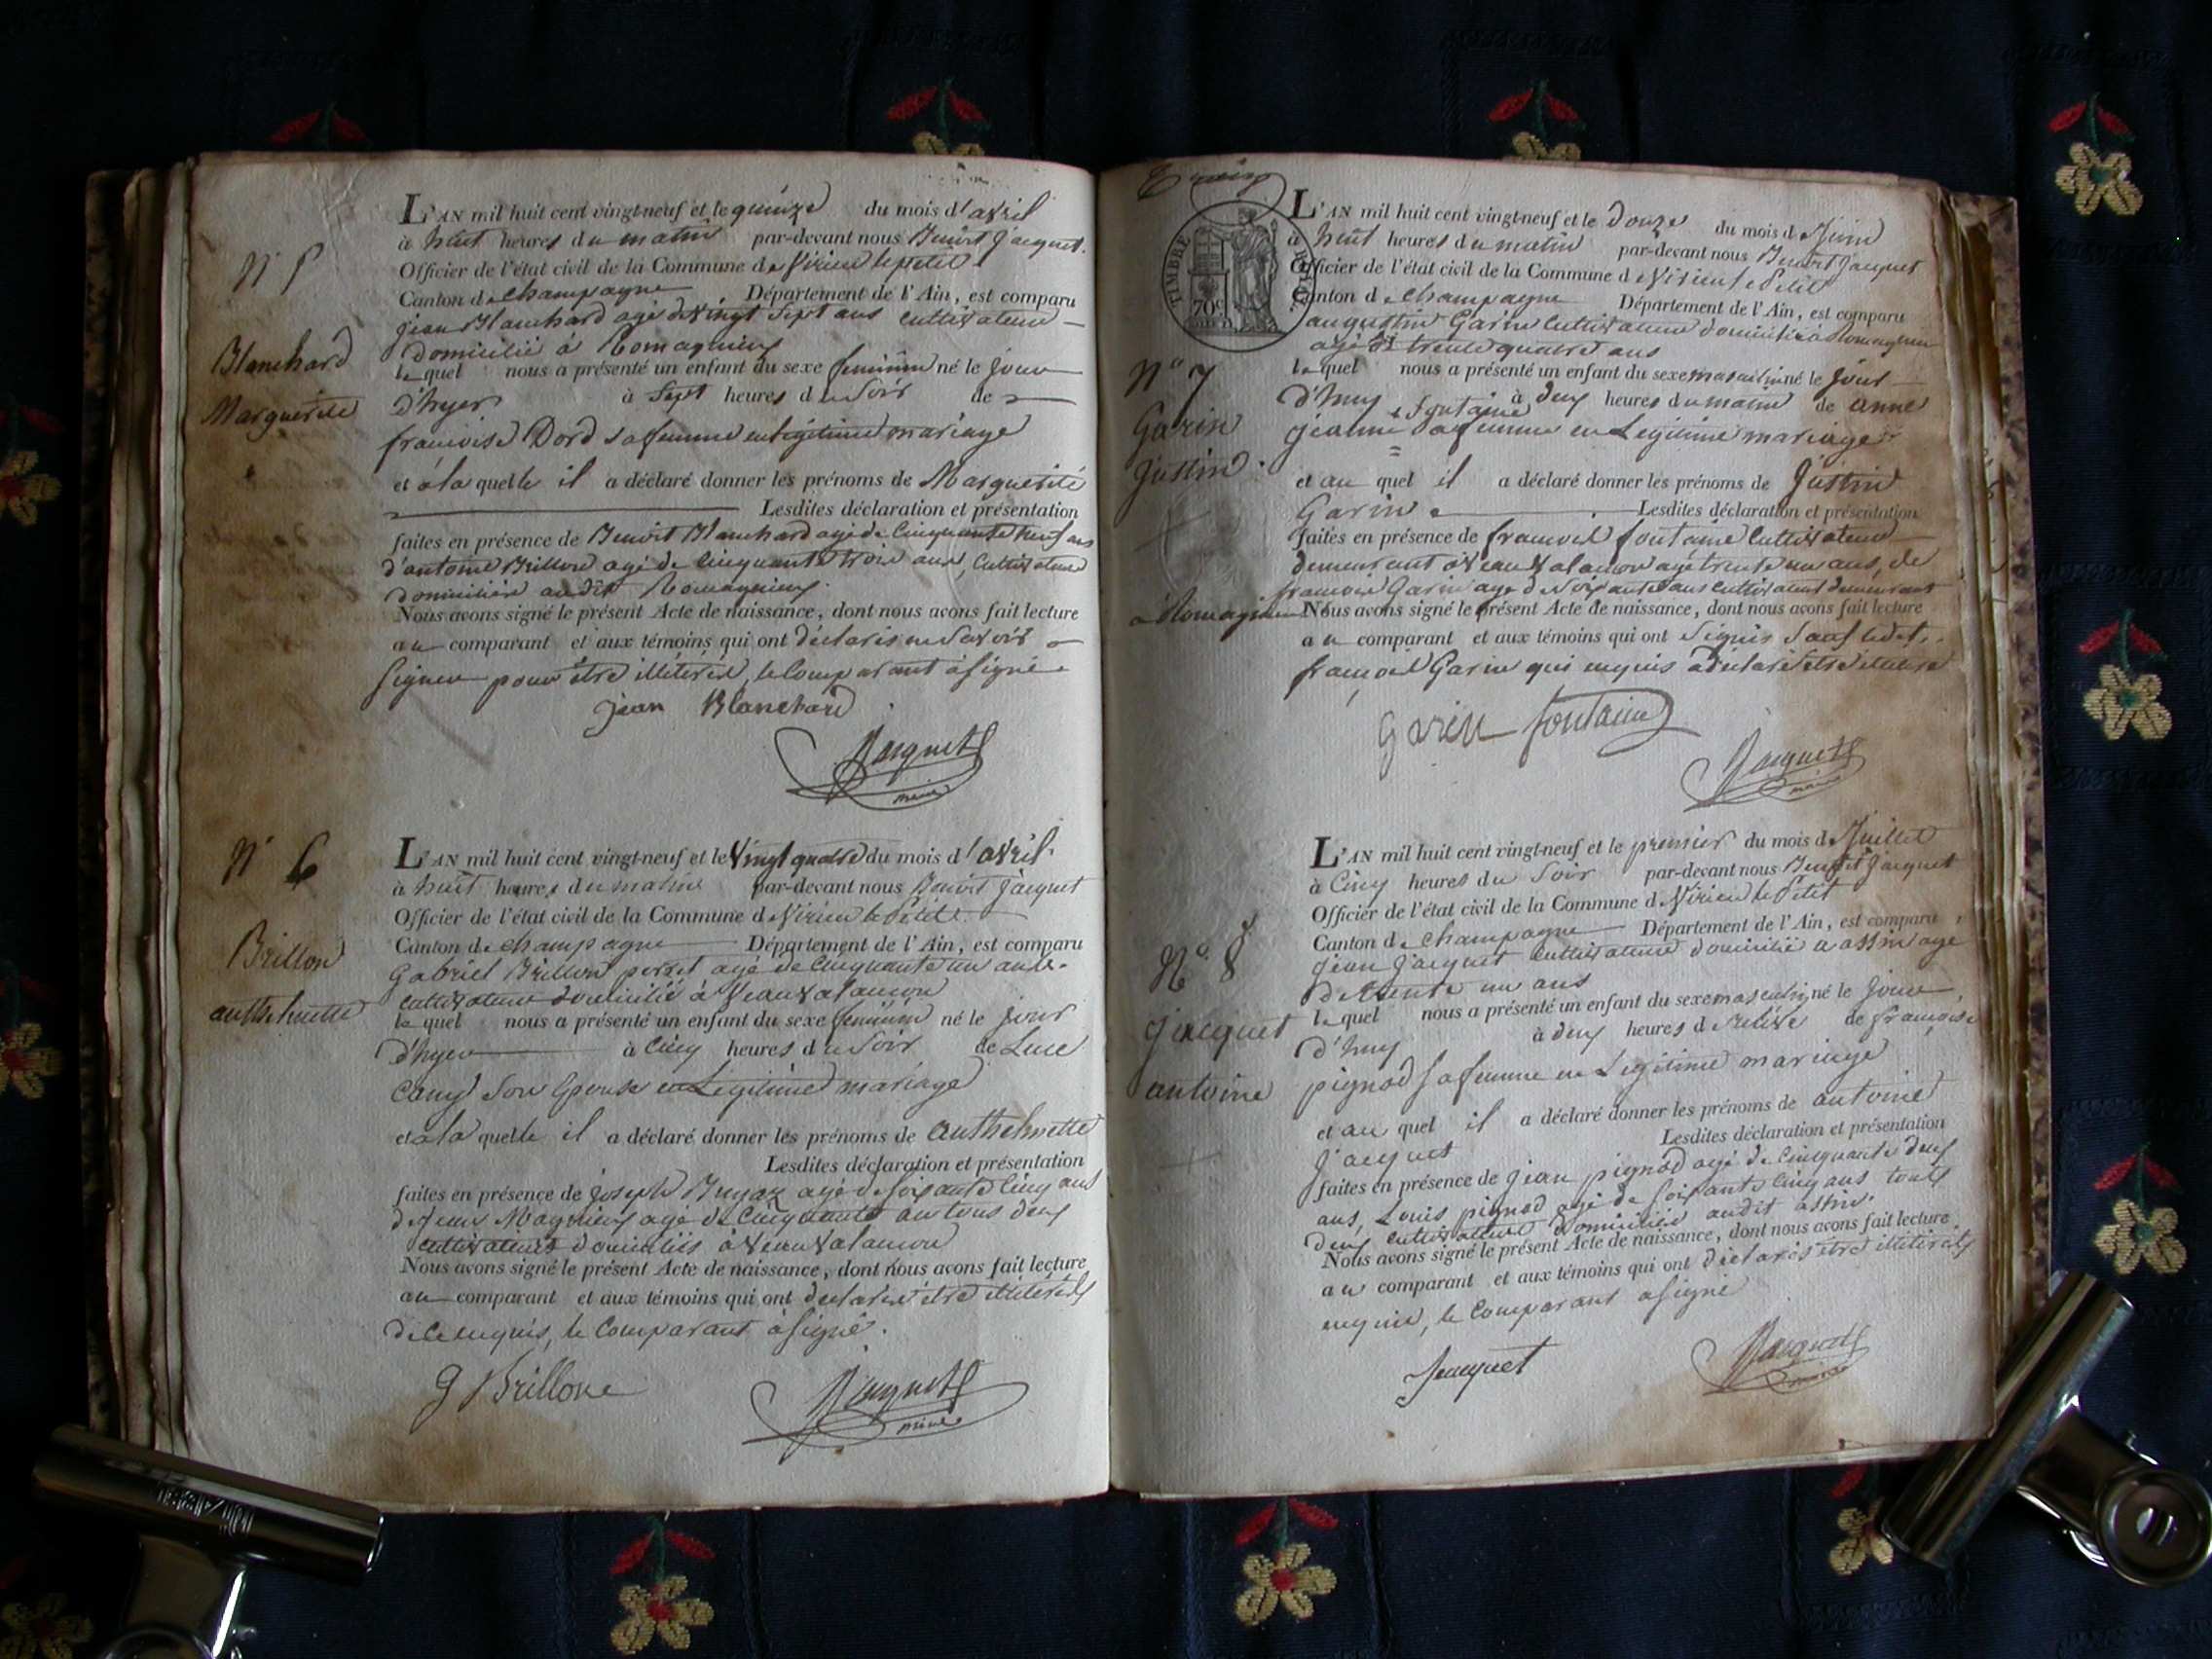 N° 5
Blanchard
Marguerite
L'AN mil huit cent vingt-neuf et le quinze du mois d'avril
à huit heures du matin par-devant nous Benoit Jacquet
Officier de l'état civil de la Commune de Virieu le petit
Canton de Champagne Département de l'Ain, est comparu
jean Blanchard agé de vingt sept ans cultivateur
domicilié à Romagnieu
lequel nous a présenté un enfant du sexe feminin né le jour
d'hyer à sept heures du soir de
françoise Dord sa femme en légitime mariage
et à la quelle il a déclaré donner les prénoms de Marguerite
Lesdites déclaration et présentation
faites en présence de Benoit Blanchard agé de cinquante neuf ans
d'antoine Brillon agé de cinquante trois ans, cultivateurs
domiciliés audit Romagnieu
Nous avons signé le présent Acte de naissance, dont nous avons fait lecture
au comparant et aux témoins qui ont déclaré ne savoir
signer pour être illitéré, le comparant a signé
jean Blanchard
Jacquet
maire
N° 6
Brillon
authelmette
L'AN mil huit cent vingt-neuf et le vingt quatre du mois d'avril
à huit heures du matin par-devant nous Benoit Jacquet
Officier de l'état civil de la Commune de Virieu le Petit
Canton de Champagne Département de l'Ain, est comparu
Gabriel Brillon perret agé de cinquante un ans
cultivateur domicilié à
lequel nous a présenté un enfant du sexe feminin né le jour
d'hyer à cinq heures du soir de Luce
Cany son epouse en Légitime mariage
et à la quelle il a déclaré donner les prénoms de authelmette
Lesdites déclaration et présentation
faites en présence de joseph agé de soixante cinq ans
agé de cinquante an tous deux
cultivateurs domiciliés à
Nous avons signé le présent Acte de naissance, dont nous avons fait lecture
au comparant et aux témoins qui ont déclaré être illitérés
de ce enquis, le comparant a signé.
G Brillon
Jacquet
maire
TIMBRE ROYAL
70c
N° 7
Garin
justin
L'AN mil huit cent vingt-neuf et le douze du mois de Juin
à huit heures du matin par-devant nous Benoit Jacquet
Officier de l'état civil de la Commune de Virieu le Petit
Canton de Champagne Département de l'Ain, est comparu
augustin Garin cultivateur domicilié à Romagnieu
agé de trente quatre ans
lequel nous a présenté un enfant du sexe masculin né le jour
d'huy à deux heures du matin de anne
fontaine
jeanne sa femme en Légitime mariage
et au quel il a déclaré donner les prénoms de justin
Garin Lesdites déclaration et présentation
faites en présence de françois fontaine cultivateur
demeurant à agé trente un ans, de
françois Garin agé de soixante ans cultivateur demeurant
à Romagnieu Nous avons signé le présent Acte de naissance, dont nous avons fait lecture
au comparant et aux témoins qui ont signés sauf ledit
françois Garin qui enquis a déclaré être illitéré
Garin fontaine
Jacquet
maire
N° 8
jacquet
antoine
L'AN mil huit cent vingt-neuf et le premier du mois de Juillet
à cinq heures du soir par-devant nous Benoit Jacquet
Officier de l'état civil de la Commune de Virieu le Petit
Canton de Champagne Département de l'Ain, est comparu
jean jacquet cultivateur domicilié a assin agé
de trente un ans
lequel nous a présenté un enfant du sexe masculin né le jour
d'huy à deux heures de de françoise
pignod sa femme en Légitime mariage
et au quel il a déclaré donner les prénoms de antoine
jacquet Lesdites déclaration et présentation
faites en présence de jean pignod agé de cinquante deux
ans, Louis pignod agé de soixante cinq ans touts
deux cultivateurs domiciliés audit assin.
Nous avons signé le présent Acte de naissance, dont nous avons fait lecture
au comparant et aux témoins qui ont déclarés être illitérés
enquis, le comparant a signé
Jacquet
Jacquet
maire